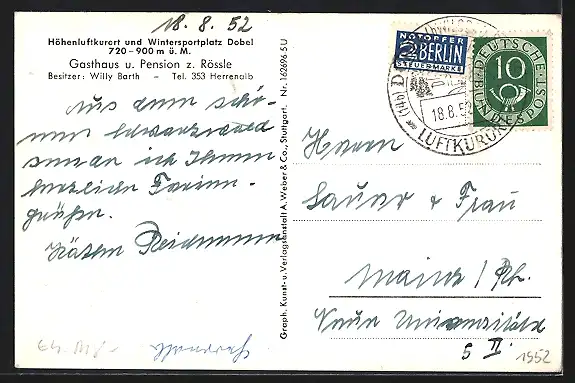 18. 8. 52
Höhenluftkurort und Wintersportplatz Dobel
720-900 m ü. M.
Gasthaus u. Pension z. Rössle
Besitzer: Willy Barth - Tel. 353 Herrenalb
Aus dem schö-
nen Schwarzwald
senden ich Ihnen
herzliche Ferien-
grüße.
Käthe
Graph. Kunst- u. Verlagsanstalt A. Weber & Co., Stuttgart. Nr. 162696 SU
NOTOPFER
2 BERLIN
STEUERMARKE
DEUTSCHE BUNDESPOST
10
18.8.52
LUFTKURORT
Herrn
Sauer & Frau
Mainz / Rh.
Neue Universität
5 II.
1952